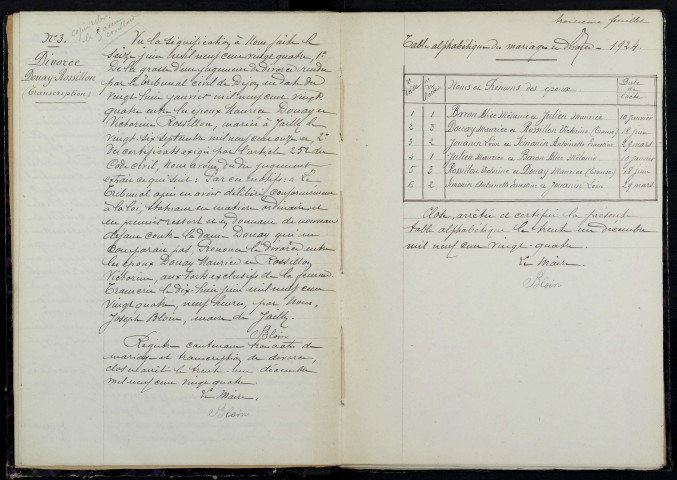 N° 3.
Divorce
Douay Rossillon
(Transcription)
Vu la signification à nous faite le
seize juin mil neuf cent vingt quatre 1°
de la grosse d'un jugement de divorce rendu
par le Tribunal civil de Dijon en date du
vingt huit janvier mil neuf cent vingt
quatre entre les époux Maurice Douay et
Victorine Rossillon, mariés à Jailly le
vingt-six septembre mil neuf cent onze et 2°
du certificat exigé par l'article 252 du
Code civil, nous avons dudit jugement
extrait ce qui suit : Par ces motifs : Le
Tribunal après en avoir délibéré conformément
à la loi, statuant en matière ordinaire et
en premier ressort et en donnant de nouveau
défaut contre la dame Douay qui ne
comparait pas, Prononce le divorce entre
les époux Douay Maurice et Rossillon
Victorine, aux torts exclusifs de la femme
Transcrit le dix-huit juin mil neuf cent
vingt quatre, neuf heures, par nous,
Joseph Bloin, maire de Jailly.
Bloin
Registre contenant trois actes de
mariage et transcription de divorce,
clos et arrêté le trente-un décembre
mil neuf cent vingt quatre.
Le Maire
Bloin
troisième feuillet
Table alphabétique des mariages et divorce - 1924.
Noms et Prénoms des époux Date de l'acte
1 1 Baron Mélanie et Julien Maurice 10 janvier
2 3 Douay Maurice et Rossillon Victorine (Divorce) 18 juin
3 2 Léon et Antoinette Ernestine 29 mars
4 1 Julien Maurice et Baron Mélanie 10 janvier
5 3 Rossillon Victorine et Douay Maurice (Divorce) 18 juin
6 2 Antoinette Ernestine et Léon 29 mars
Close, arrêtée et certifiée la présente
table alphabétique le trente un décembre
mil neuf cent vingt-quatre.
Le Maire
Bloin